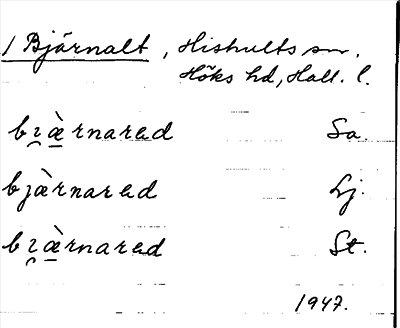 / Bjärnalt, Hishults sn.
Höks hd, Hall. l.
bı̯æ̀rnarɛd Sa.
bjàrnarɛd Lj.
bı̯æ̀rnarɛd St.
1947.